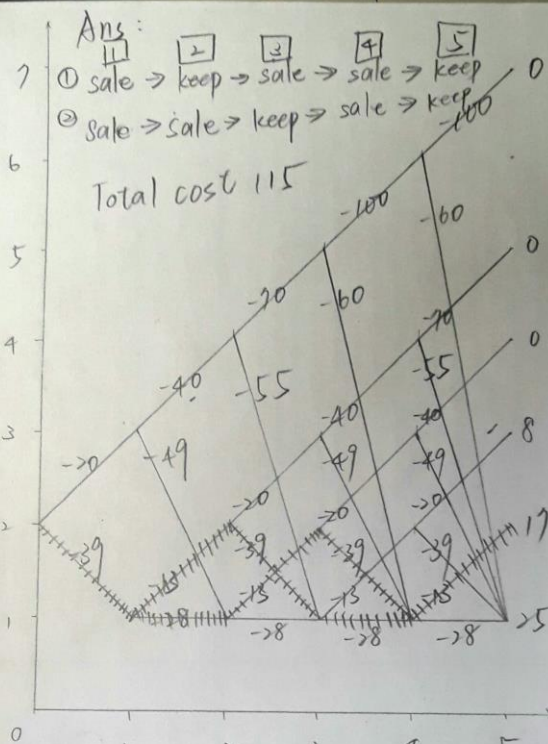 Ans :
1 2 3 4 5
① sale → keep → sale → sale → keep
② sale → sale → keep → sale → keep
Total cost 115
7
0
-100
6
-100
-60
5
-70
-60
0
-70
4
-40
-55
-55
0
-40
-40
3
-20
-49
-49
-49
8
-20
-20
-20
2
-39
-39
-39
-39
17
-13
-13
-13
-13
1
-28
-28
-28
-28
25
0